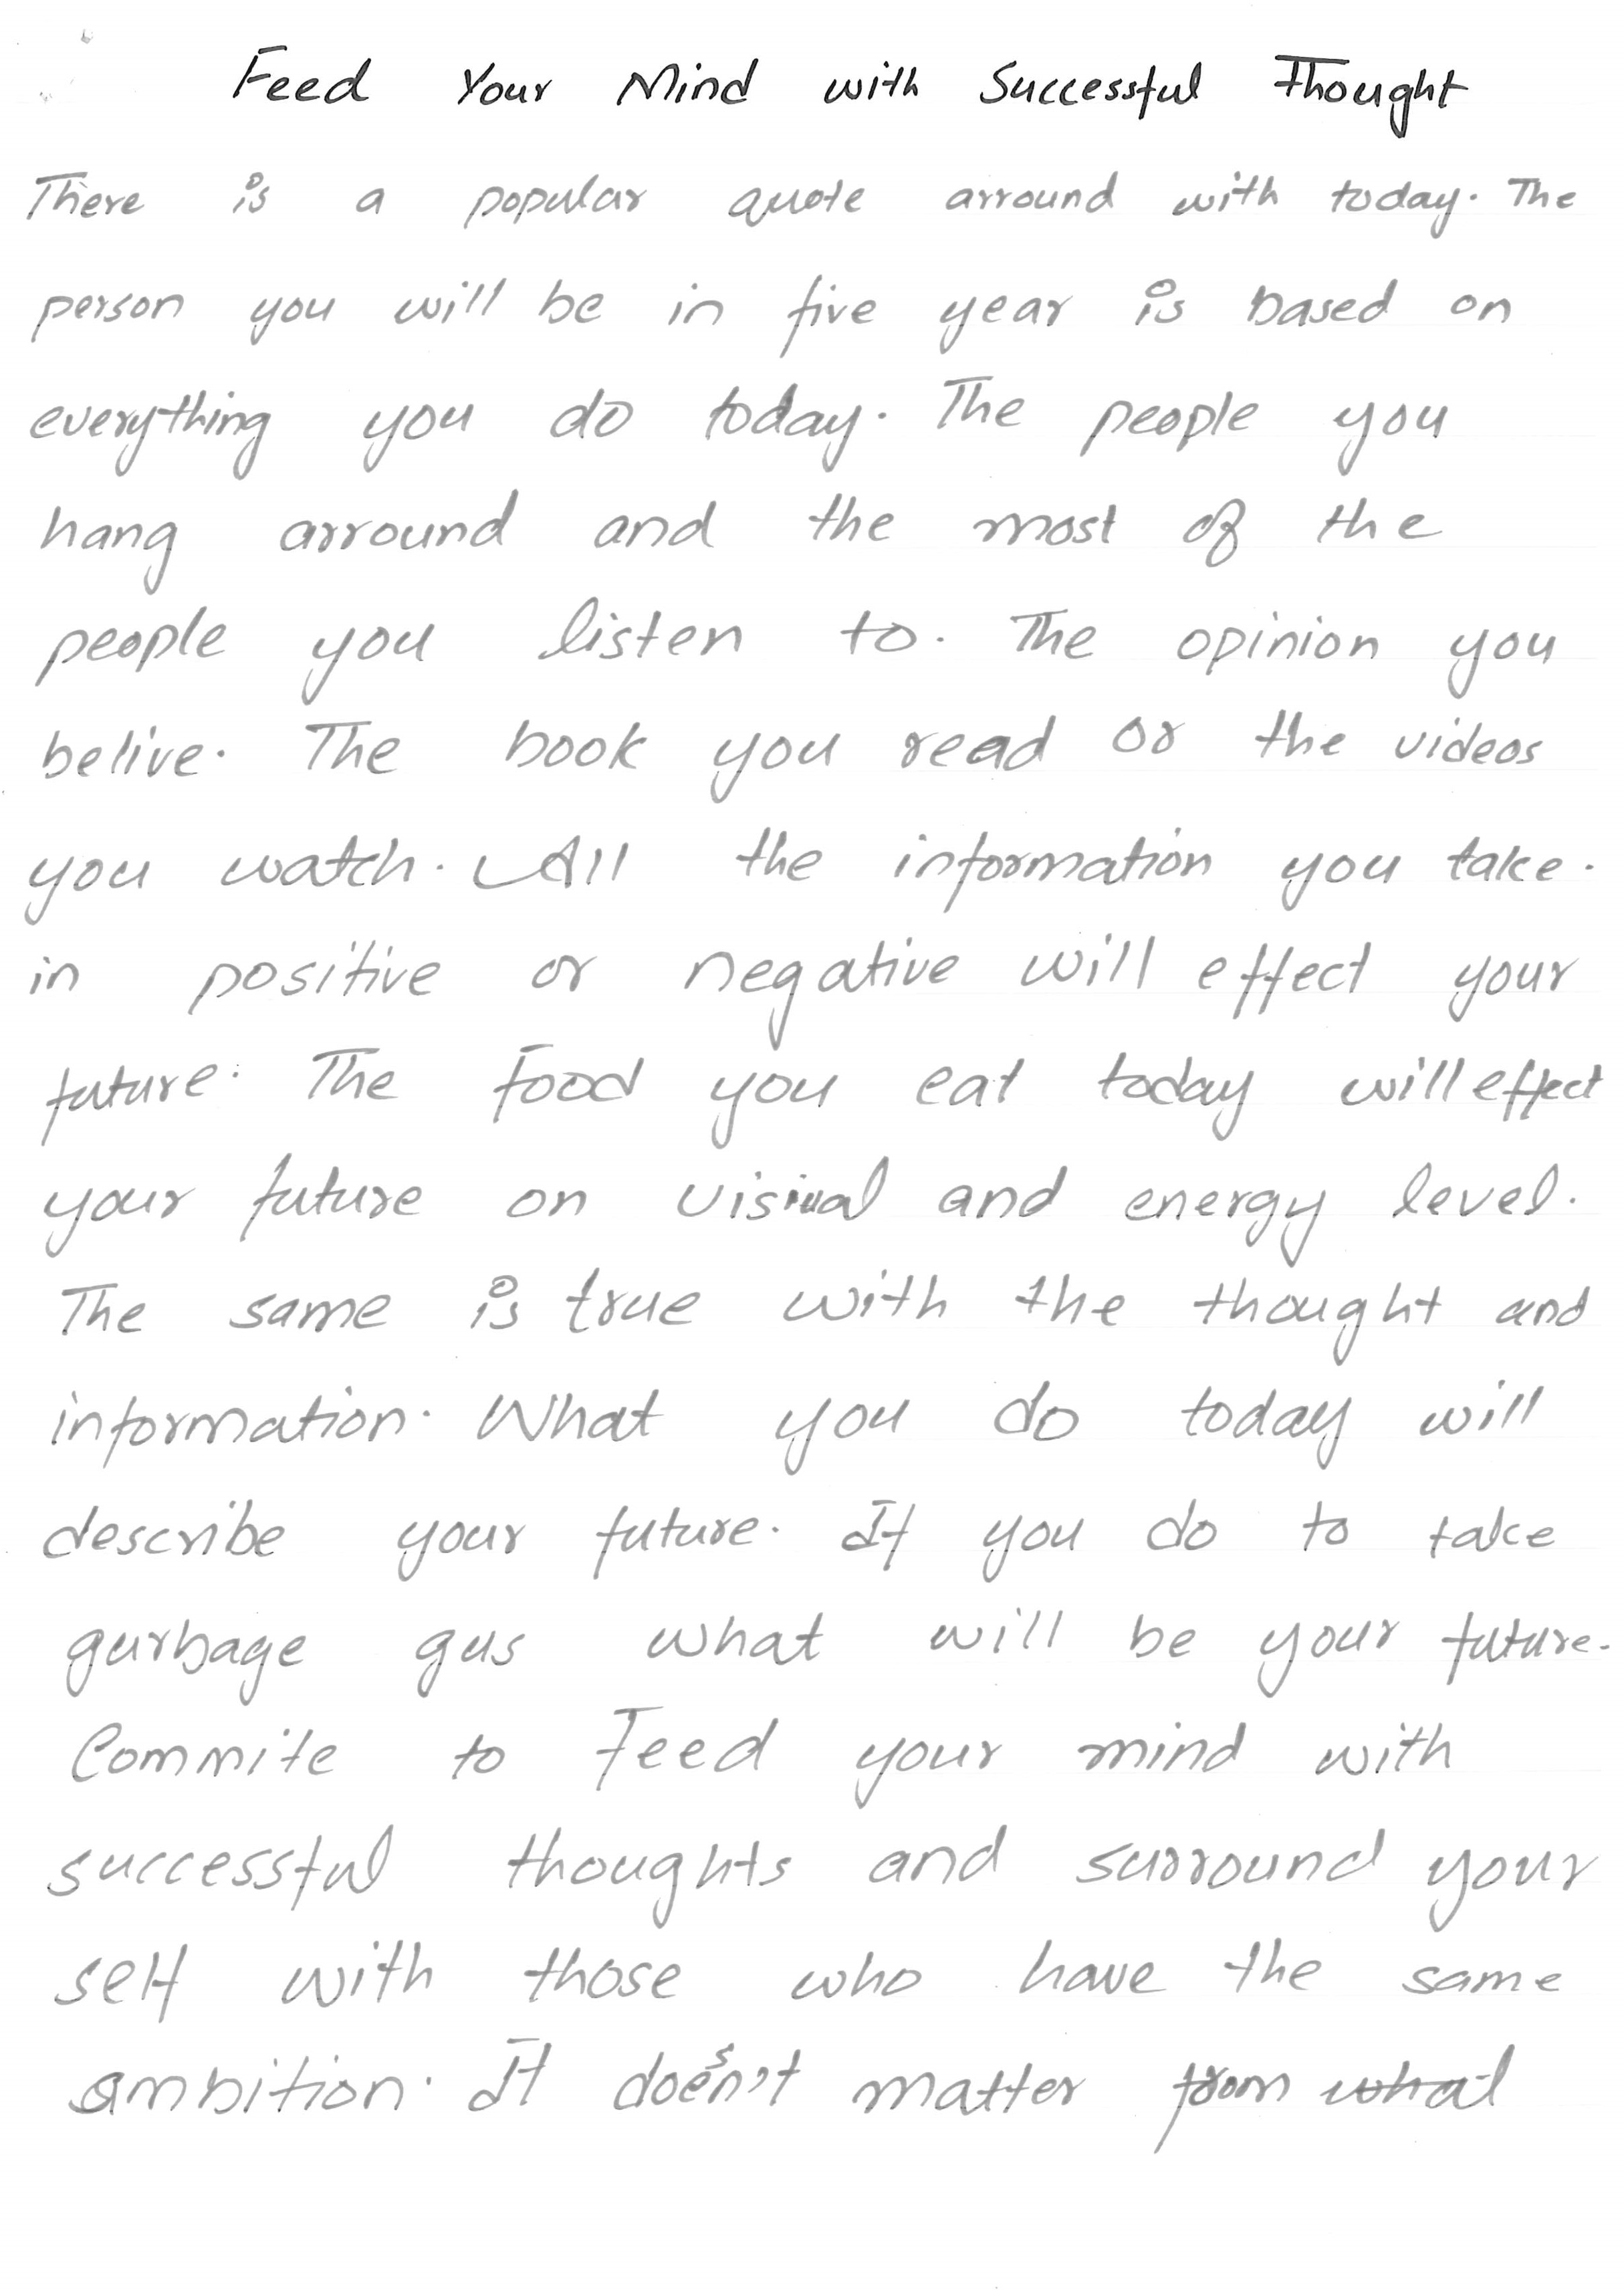 Feed Your Mind with Successful Thought
There is a popular quote arround with today. The
person you will be in five year is based on
everything you do today. The people you
hang arround and the most of the
people you listen to. The opinion you
belive. The book you read or the videos
you watch. All the information you take.
in positive or negative will effect your
future. The food you eat today will effect
your future on visiual and energy level.
The same is true with the thought and
information. What you do today will
describe your future. If you do to take
gurbage gus what will be your future.
Commite to Feed your mind with
successful thoughts and surround your
self with those who have the same
ambition. It doesn't matter from what